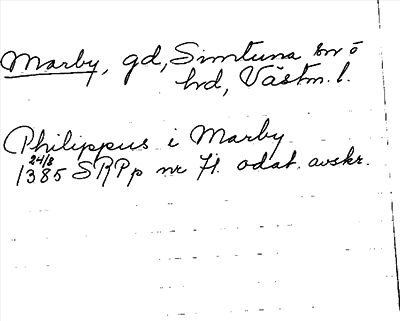 Marby, gd, Simtuna sn o
hrd, Västm. l.
Philippus i Marby
24/8
1385 SRPp nr 71. odat. avskr.